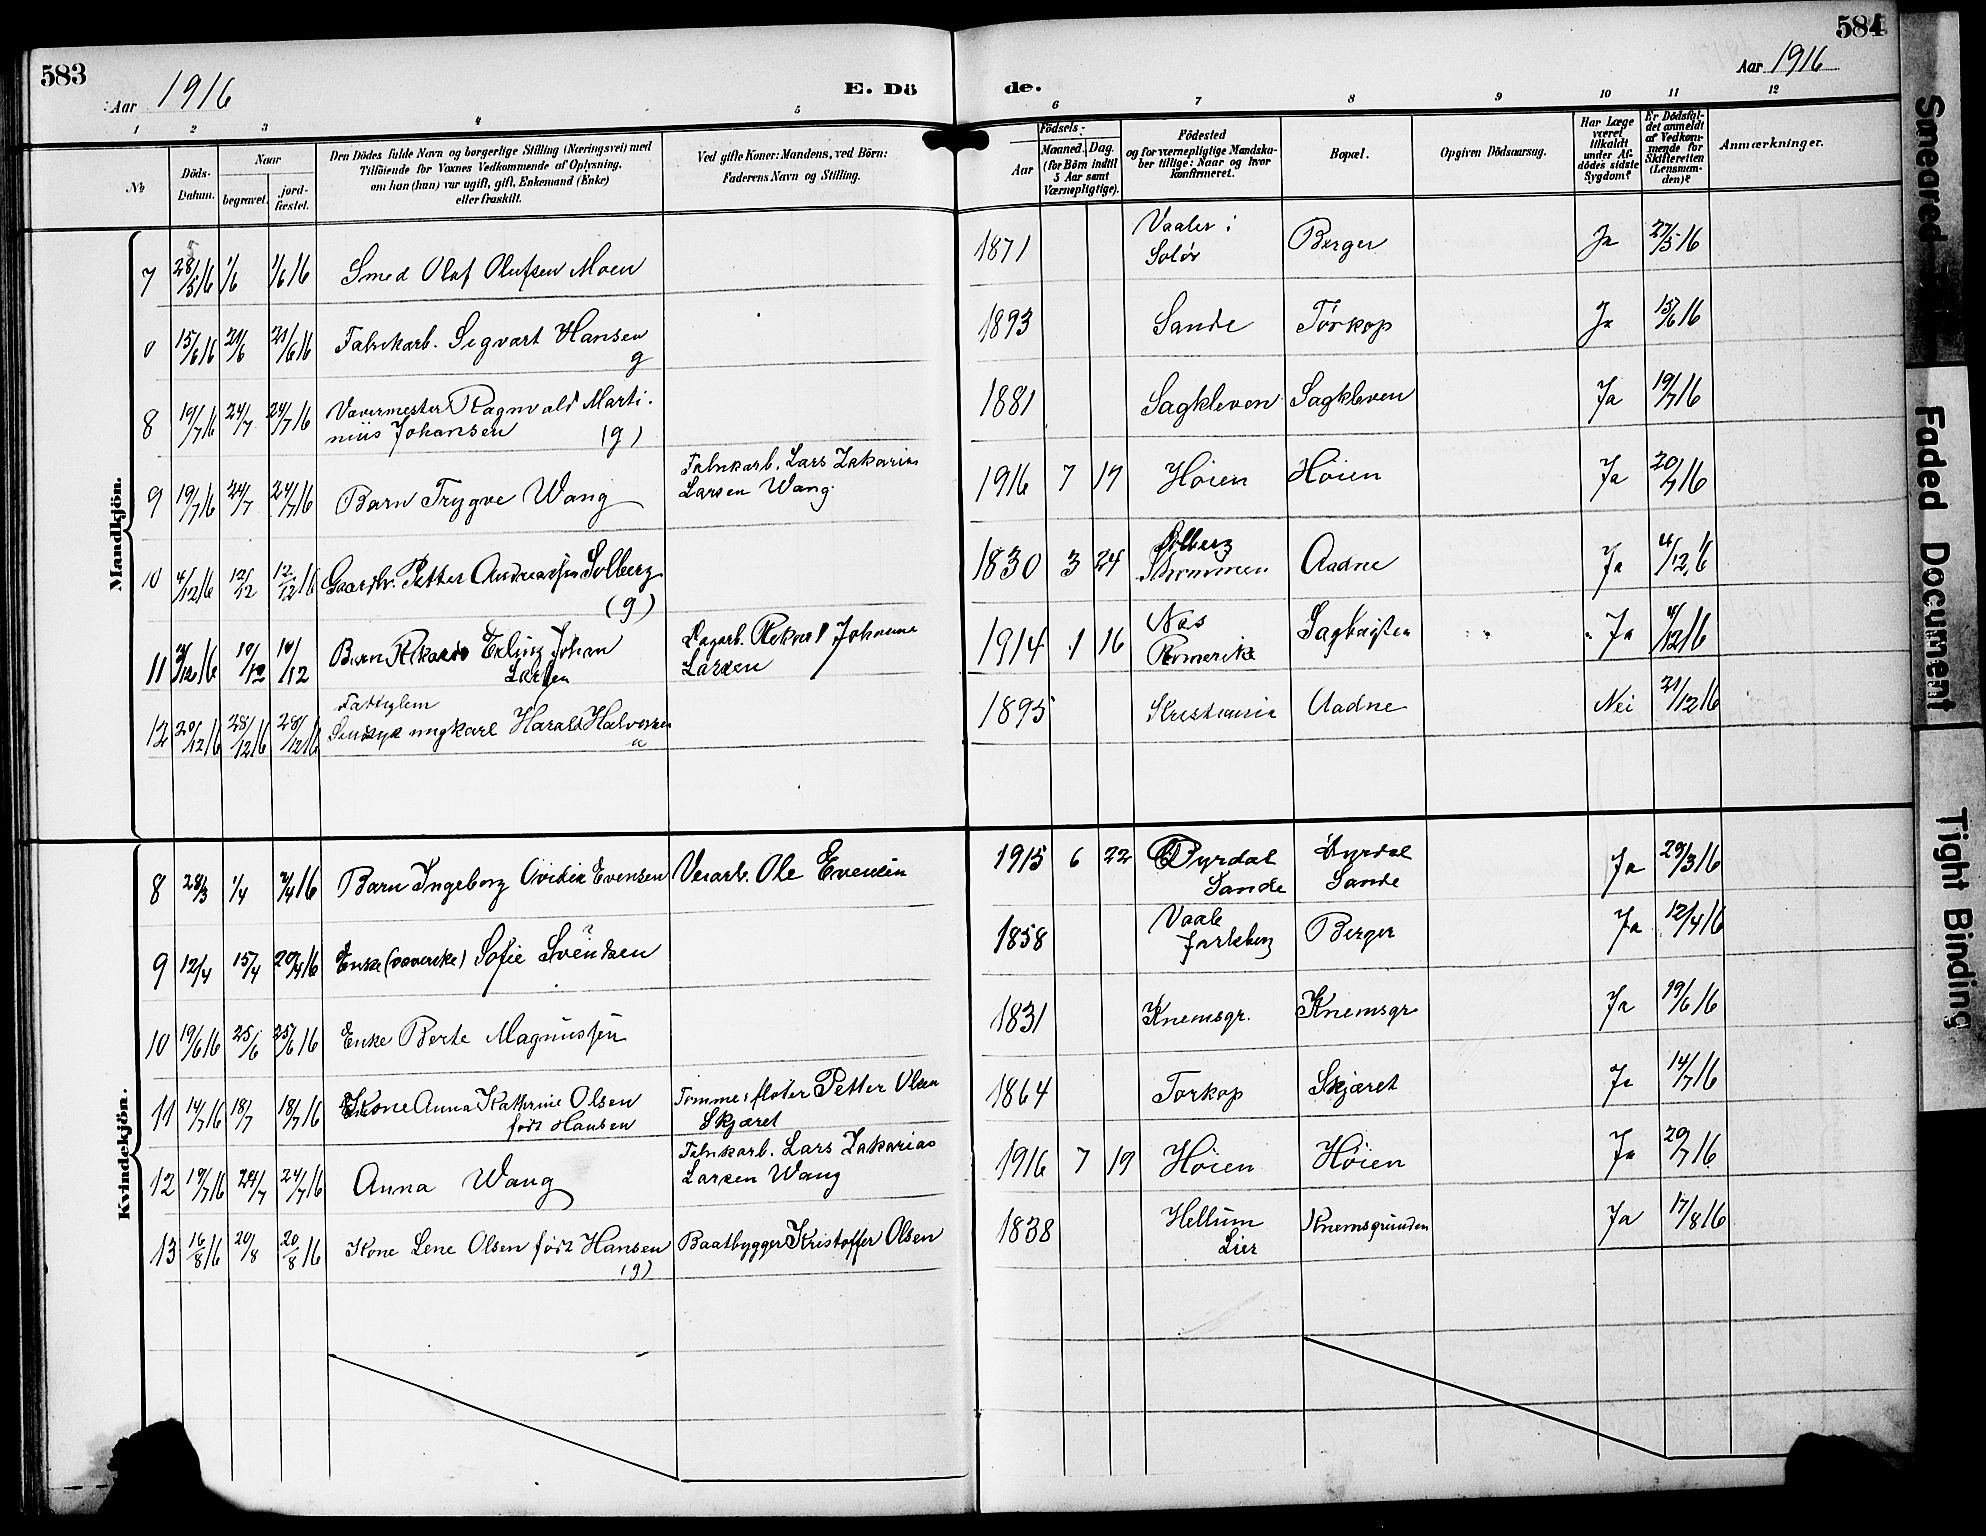 583
Aar 1916
E. Dö
de.
584
Aar 1916
1 2 3 4 5 6 7 8 9 10 11 12
No
Döds-
Datum.
Naar
begravet.
jord-
fæstet.
Den Dödes fulde Navn og borgerlige Stilling (Næringsvei) med
Tilföiende for Voxnes Vedkommende af Oplysning,
om han (hun) var ugift, gift, Enkemand (Enke)
eller fraskilt.
Ved gifte Koner: Mandens, ved Börn:
Faderens Navn og Stilling.
Födsels-
Aar
Maaned. Dag.
(for Börn indtil
5 Aar samt
Værnepligtige).
Födested
og for værnepligtige Mandska-
ber tillige: Naar og hvor
konfirmeret.
Bopæl.
Opgiven Dödsaarsag.
Har Læge
været
tilkaldt
under Af-
dödes sidste
Sygdom?
Er Dödsfal-
det anmeldt
af Vedkom-
mende for
Skifteretten
(Lensman-
den)?
Anmærkninger.
Mandkjön.
7 28/5 16 1/6 1/6 16 Smed Olaf Olufsen Moen 1871 Vaaler i
Solör Berger Ja 27/5 16
15/6 16 21/6 21/6 16 Fabrikarb. Sigvart Hansen
g 1893 Sande Törkop Ja 15/6 16
8 19/7 16 24/7 24/7 16 Vævermester Ragnvald Marti-
nius Johansen (g) 1881 Sagkleven Sagkleven Ja 19/7 16
9 19/7 16 24/7 24/7 16 Barn Trygve Wang Fabrikarb. Lars Zakarias
Larsen Wang 1916 7 19 Höien Höien Ja 20/7 16
10 4/12 16 12/12 12/12 16 Gaardbr. Petter Andreassen Solberg
(g) 1830 3 24 Solberg
Strømmen Aadne Ja 4/12 16
11 4/12 16 10/12 10/12 Barn Rikard Erling Johan
Larsen Dagarb. Rikard Johannes
Larsen 1914 1 16 Nes
Romerike Saghaugen Ja 4/12 16
12 20/12 16 28/12 16 28/12 16 Fattiglem
Sindsyk ungkarl Harald Halvorsen
u 1895 Kristiania Aadne Nei 21/12 16
Kvindekjön.
8 28/3 1/4 2/4 16 Barn Ingeborg Ovidia Evensen Veiarb. Ole Evensen 1915 6 22 Dyrdal
Sande Dyrdal
Sande Ja 29/3 16
9 12/4 15/4 20/4 16 Enke (væverske) Sofie Svendsen 1858 Vaale
Jarlsberg Berger Ja 12/4 16
10 19/6 16 25/6 25/6 16 Enke Berte Magnussen 1831 Knemsgr. Knemsgr Ja 19/6 16
11 14/7 16 18/7 18/7 16 Kone Anna Kathrine Olsen
födt Hansen Tømmerfløter Petter Olsen
Skjæret 1864 Torkop Skjæret Ja 14/7 16
12 19/7 16 24/7 24/7 16 Anna Wang Fabrikarb. Lars Zakarias
Larsen Wang 1916 7 19 Höien Höien Ja 20/7 16
13 16/8 16 20/8 20/8 16 Kone Lene Olsen födt Hansen
(g) Baatbygger Kristoffer Olsen 1838 Hellum
Lier Knemsgrunden Ja 17/8 16
Smeared
Faded Document
Tight Binding